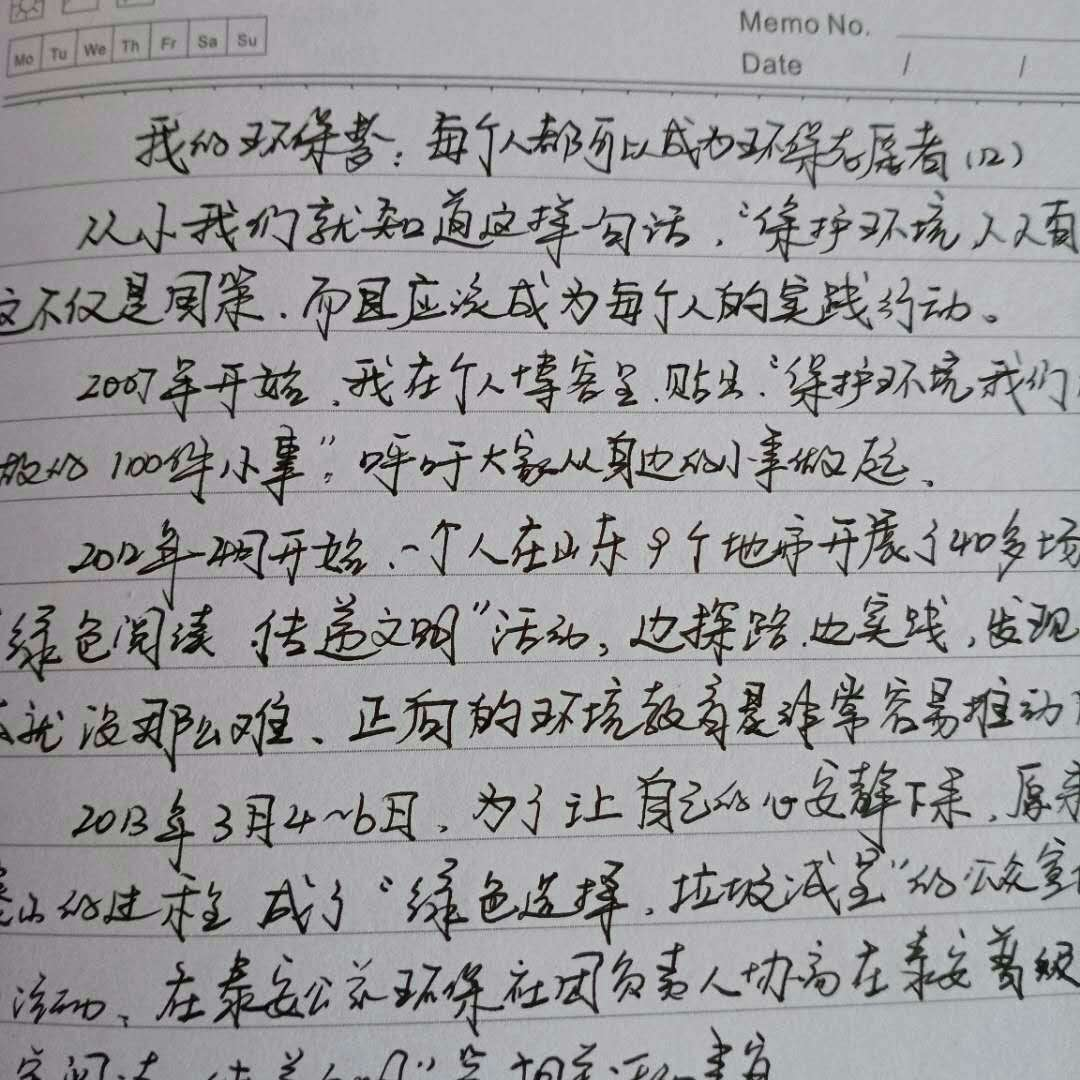 Mo Tu We Th Fr Sa Su
Memo No.
Date / /
我的环保梦：每个人都可以成为环保志愿者（12）
从小我们就知道这样一句话，“保护环境，人人有
这不仅是国策，而且应该成为每个人的实践行动。
2007年开始，我在个人博客里贴出“保护环境我们
做的100件小事”，呼吁大家从身边的小事做起，
2012年开始，一个人在山东9个地市开展了40多场
绿色阅读 传递文明”活动，边探路边实践，发现
就没那么难、正面的环境教育是非常容易推动
2013年3月4~6日，为了让自己的心安静下来，原来
的过程 成了“绿色选择，垃圾减量”的公众宣
活动、在泰安公益环保社团负责人协商在泰安普